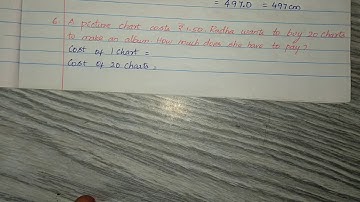 = 497.0 = 497cm
6. A picture chart costs ₹1.50. Radha wants to buy 20 charts
to make an album. How much does she have to pay?
Cost of 1 chart =
Cost of 20 charts =